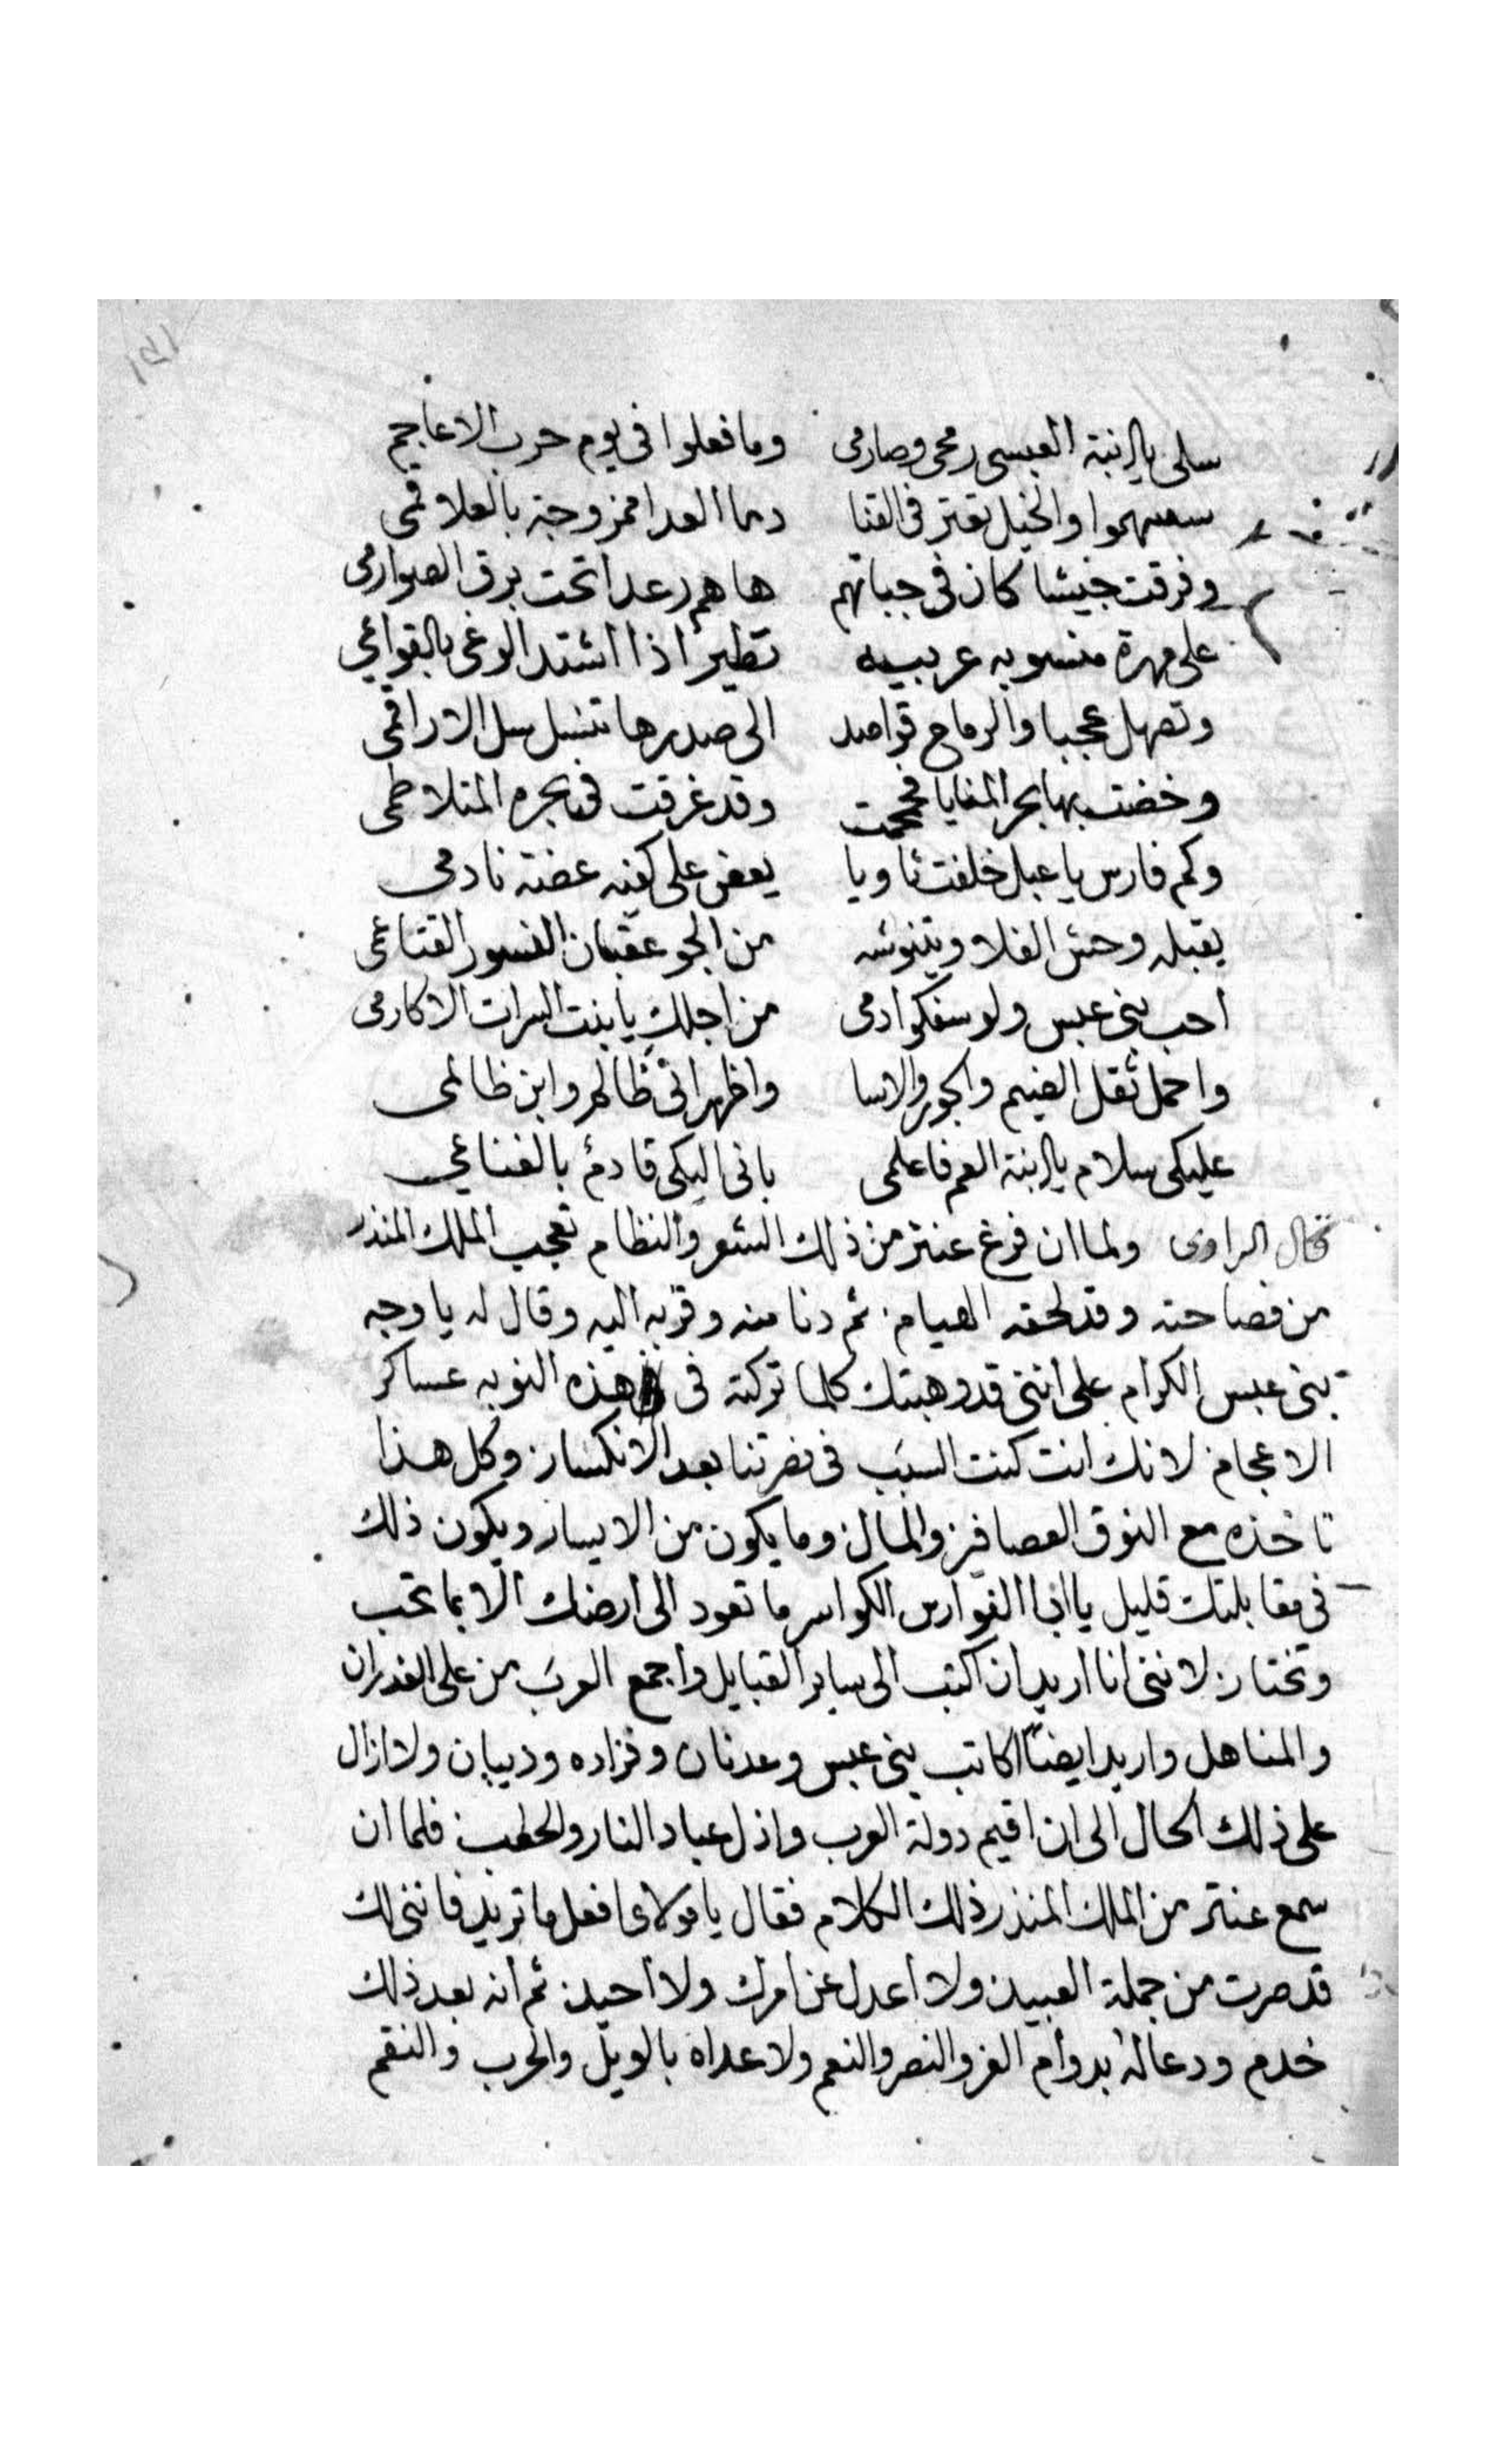 سلى يا ابنة العبسى رمحى وصارمى وما فعلوا فى يوم حرب الاعاجم
سقيتهموا والخيل تعتر فى القنا دما العدا ممزوجة بالعلاقمى
وفرقت جيشا كان فى جنباتهم هاهم رعدا تحت برق الصوارمى
على مهرة منسوبه عربييه تطير اذا اشتد الوغى بالقوايمى
وتصهل عجبا والرماح قواصد الى صدرها تنسل سل الاراقمى
وخضت بها بحر المنايا فحمحمت وقد غرقت فى بحره المتلاطمى
وكم فارس يا عبل خلفت ثاويا يعض على كفيه عضته نادمى
يقبله وحش الفلا ويتنوشه من الجو عقبان النسور القشاعمى
احب بنى عبس ولو سفكوا دمى من اجلك يا بنت السرات الاكارمى
واحمل ثقل الضيم والجور والاسا واظهر انى ظالم وابن ظالمى
عليكى سلام يا ابنة العم فاعلمى بانى اليكى قادم بالغنايمى
قال الراوى ولما ان فرغ عنتر من ذلك الشعر والنظام تعجب الملك المنذر
من فصاحته وقد لحقه الهيام. ثم دنا منه وقربه اليه وقال له يا وجه
بنى عبس الكرام على اننى قد وهبتك كلما تركته فى هذه النوبه عساكر
الاعجام لانك انت كنت السبب فى نصرتنا بعد الانكسار وكل هذا
تاخذه مع النوق العصافير والمال وما يكون من الايسار ويكون ذلك
فى مقابلتك قليل يا ابا الفوارس الكواسر ما تعود الى ارضك الا بما تحب
وتختار لاننى انا اريد ان اكتب الى ساير القبايل واجمع العرب من على الغدران
والمناهل واريد ايضا اكاتب بنى عبس وعدنان وفزاره ودبيان ولا ازال
على ذلك الحال الى ان اقيم دولة العرب واذل عباد النار والحطب فلما ان
سمع عنتر من الملك المنذر ذلك الكلام فقال يا مولاى افعل ما تريد فاننى لك
قد صرت من جملة العبيد ولا اعدل عن امرك ولا احيد ثم انه بعد ذلك
خدم ودعا له بدوام العز والنصر والنعم ولاعداه بالويل والحرب والنقم